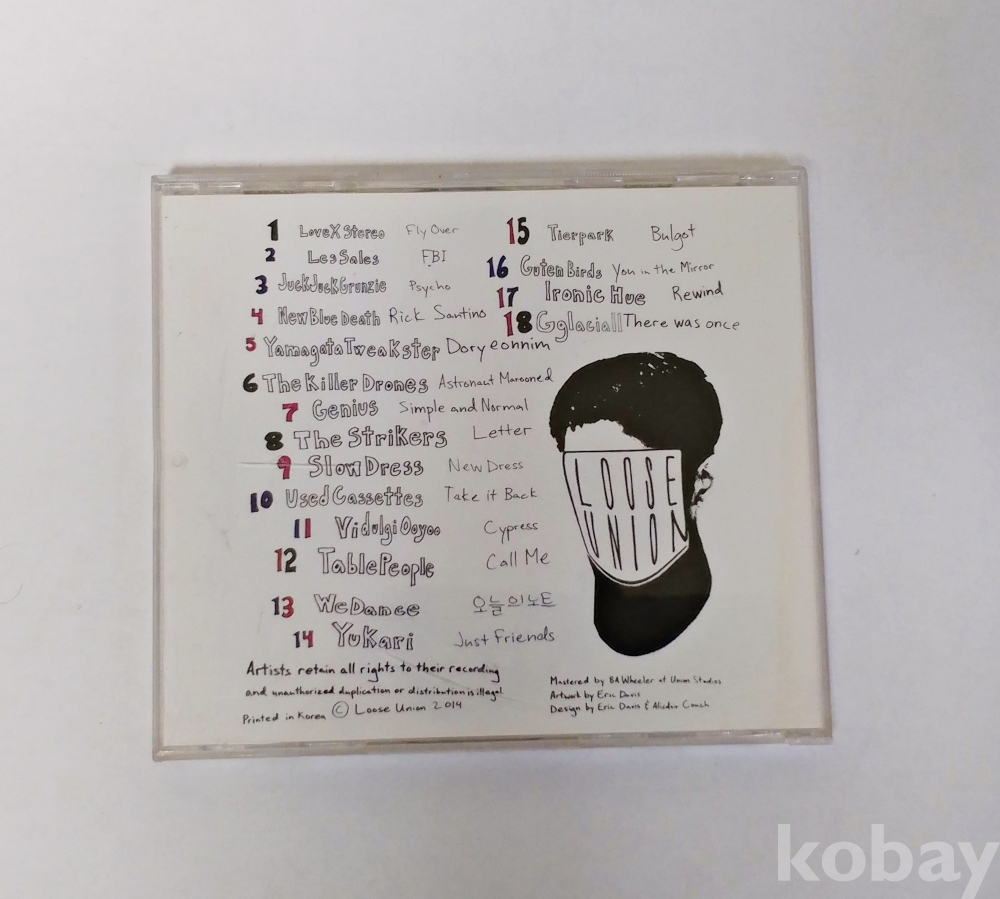 1 LoveXStereo Fly Over
2 LesSales FBI
3 JuckJuckGrunzie Psycho
4 NewBlueDeath Rick Santino
5 YamagataTweakster Doryeonnim
6 The Killer Drones Astronaut Marooned
7 Genius Simple and Normal
8 The Strikers Letter
9 SlowDress New Dress
10 UsedCassettes Take it Back
11 VidulgiOoyoo Cypress
12 TablePeople Call Me
13 WeDance 오늘의노트
14 Yukari Just Friends
15 Tierpark Bulgot
16 GutenBirds You in the Mirror
17 Ironic Hue Rewind
18 Gglaciall There was once
LOOSE
UNION
Artists retain all rights to their recording
and unauthorized duplication or distribution is illegal
Printed in Korea © Loose Union 2014
Mastered by BA Wheeler at Union Studios
Artwork by Eric Davis
Design by Eric Davis & Alisdar Couch
kobay